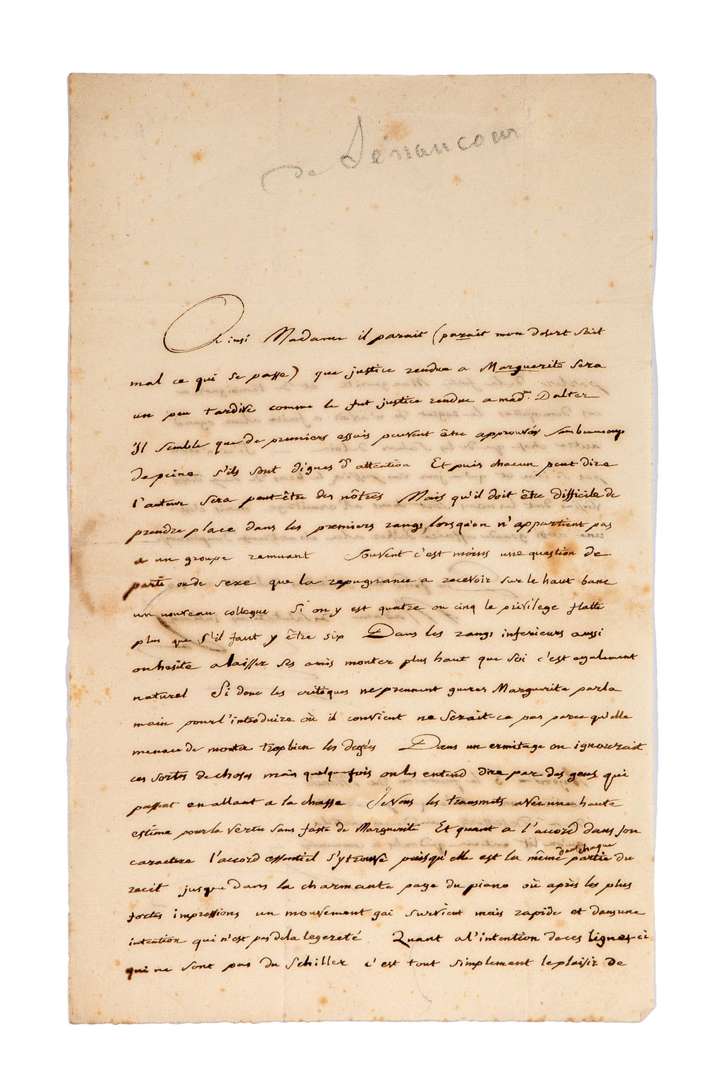 de Senancour
Ainsi Madame il parait (parait mon desert sait
mal ce qui se passe) que justice rendue a Marguerite sera
un peu tardive comme le fut justice rendue a mad. Dalter
Il semble que de premiers essais peuvent être approuvés sans beaucoup
de peine s'ils sont dignes d'attention Et puis chacun peut dire
l'auteur sera peut-être des nôtres Mais qu'il doit être difficile de
prendre place dans les premiers rangs lorsqu'on n'appartient pas
a un groupe remuant Souvent c'est moins une question de
parti ou de sexe que la repugnance a recevoir sur le haut banc
un nouveau collegue Si on y est quatre ou cinq le privilege flatte
plus que s'il faut y être six Dans les rangs inferieurs aussi
on hesite a laisser ses amis monter plus haut que soi c'est egalement
naturel Si donc les critiques ne prennent gueres Marguerite par la
main pour l'introduire où il convient ne serait ce pas parce qu'elle
menace de monter trop bien les degrés Dans un ermitage on ignorerait
ces sortes de choses mais quelque fois on les entend dire par des gens qui
passent en allant a la chasse Je vous les transmets avec une haute
estime pour la vertu sans faste de Marguerite Et quant a l'accord dans son
caractere l'accord essentiel s'y trouve puisqu'elle est la même dans chaque partie du
recit jusque dans la charmante page du piano où après les plus
fortes impressions un mouvement gai survient mais rapide et dans une
intention qui n'est pas de la legereté Quant a l'intention de ces lignes-ci
qui ne sont pas du Schiller c'est tout simplement le plaisir de